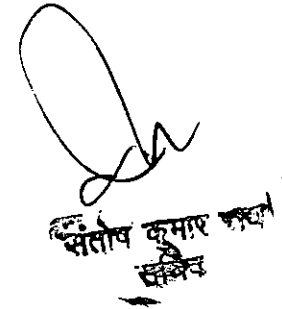 संतोष कुमार
सचिव